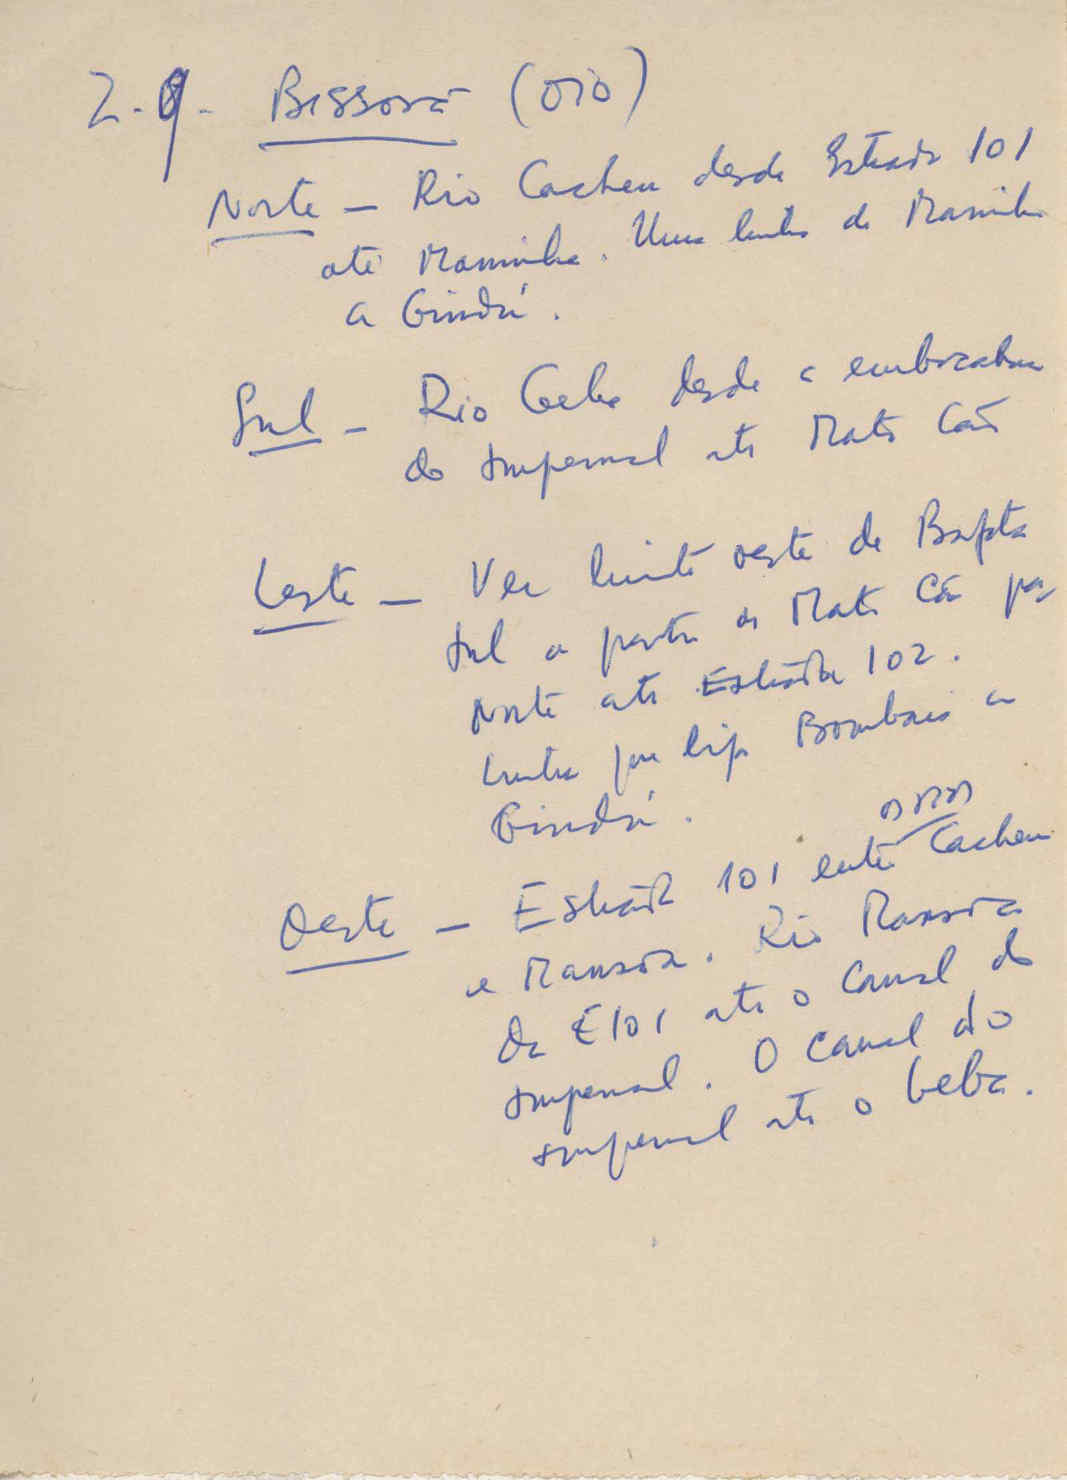 2-9- Bissorã (OIO)
Norte – Rio Cacheu desde Estrada 101
até Maninha. Uma linha de Maninha
a Gindú.
Sul – Rio Geba desde a embocadura
do Impernal até Mato Cão
Leste – Ver limite oeste de Bafata
Sul a partir de Mato Cão por
Norte até Estrada 102.
Linha que liga Bombaio a
Gindú.
Oeste – Estrada 101 entre Cacheu
e Mansoa. Rio Mansoa
da E101 até o Canal do
Impernal. O Canal do
Impernal até o Geba.